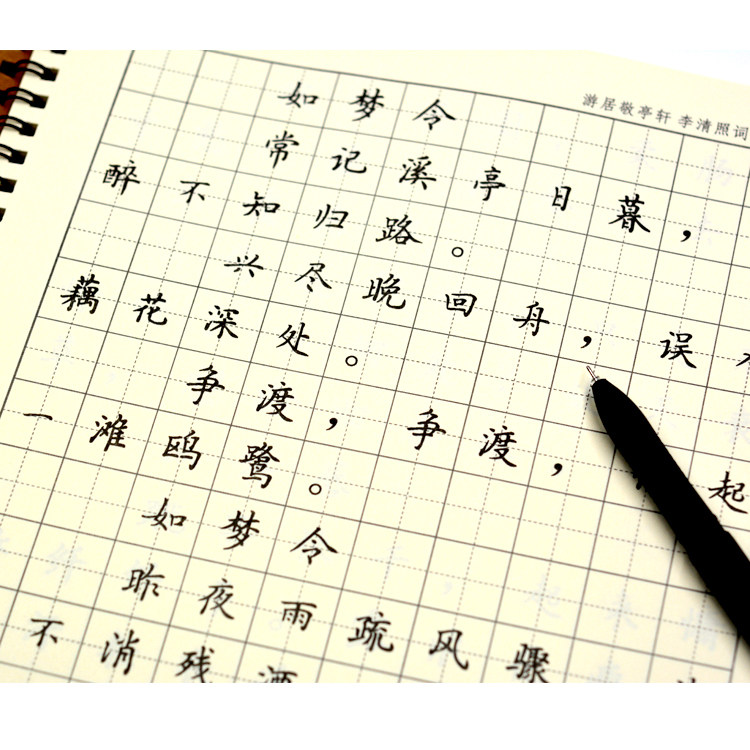 游居敬亭轩 李清照词
如梦令
常记溪亭日暮，
醉不知归路。
兴尽晚回舟，误
藕花深处。
争渡，争渡，起
一滩鸥鹭。
如梦令
昨夜雨疏风骤
不消残